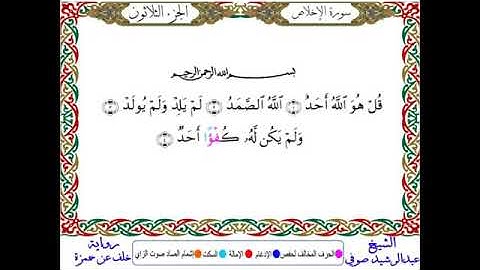 سورة الإخلاص
الجزء الثلاثون
بسم الله الرحمن الرحيم
قُلْ هُوَ ٱللَّهُ أَحَدٌ ٱللَّهُ ٱلصَّمَدُ لَمْ يَلِدْ وَلَمْ يُولَدْ
وَلَمْ يَكُن لَّهُۥ كُفْؤًا أَحَدٌۢ
الشيخ
عبدالرشيد صوفي
الحرف المخالف لحفص الإدغام الإمالة السكت إشمام الصاد صوت الزاي
رواية
خلف عن حمزة